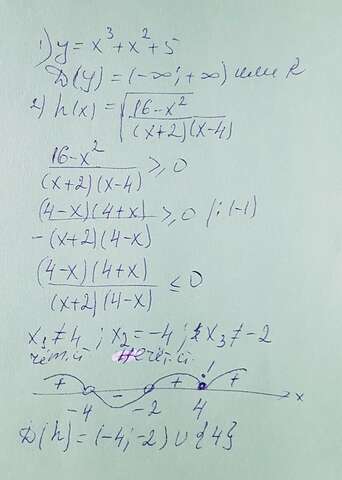 1) y = x³ + x² + 5
D(y) = (-∞; +∞) или R
2) h(x) = √((16-x²)/((x+2)(x-4)))
(16-x²)/((x+2)(x-4)) ≥ 0
((4-x)(4+x))/(-(x+2)(4-x)) ≥ 0 |:(-1)
((4-x)(4+x))/((x+2)(4-x)) ≤ 0
x₁ ≠ 4 ; x₂ = -4 ; x₃ ≠ -2
+ - + ! + x
-4 -2 4
D(h) = (-4; -2) ∪ {4}